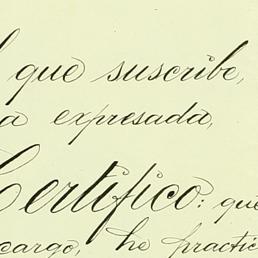 que suscribe,
a expresada,
Certifico: que
cargo, he practic